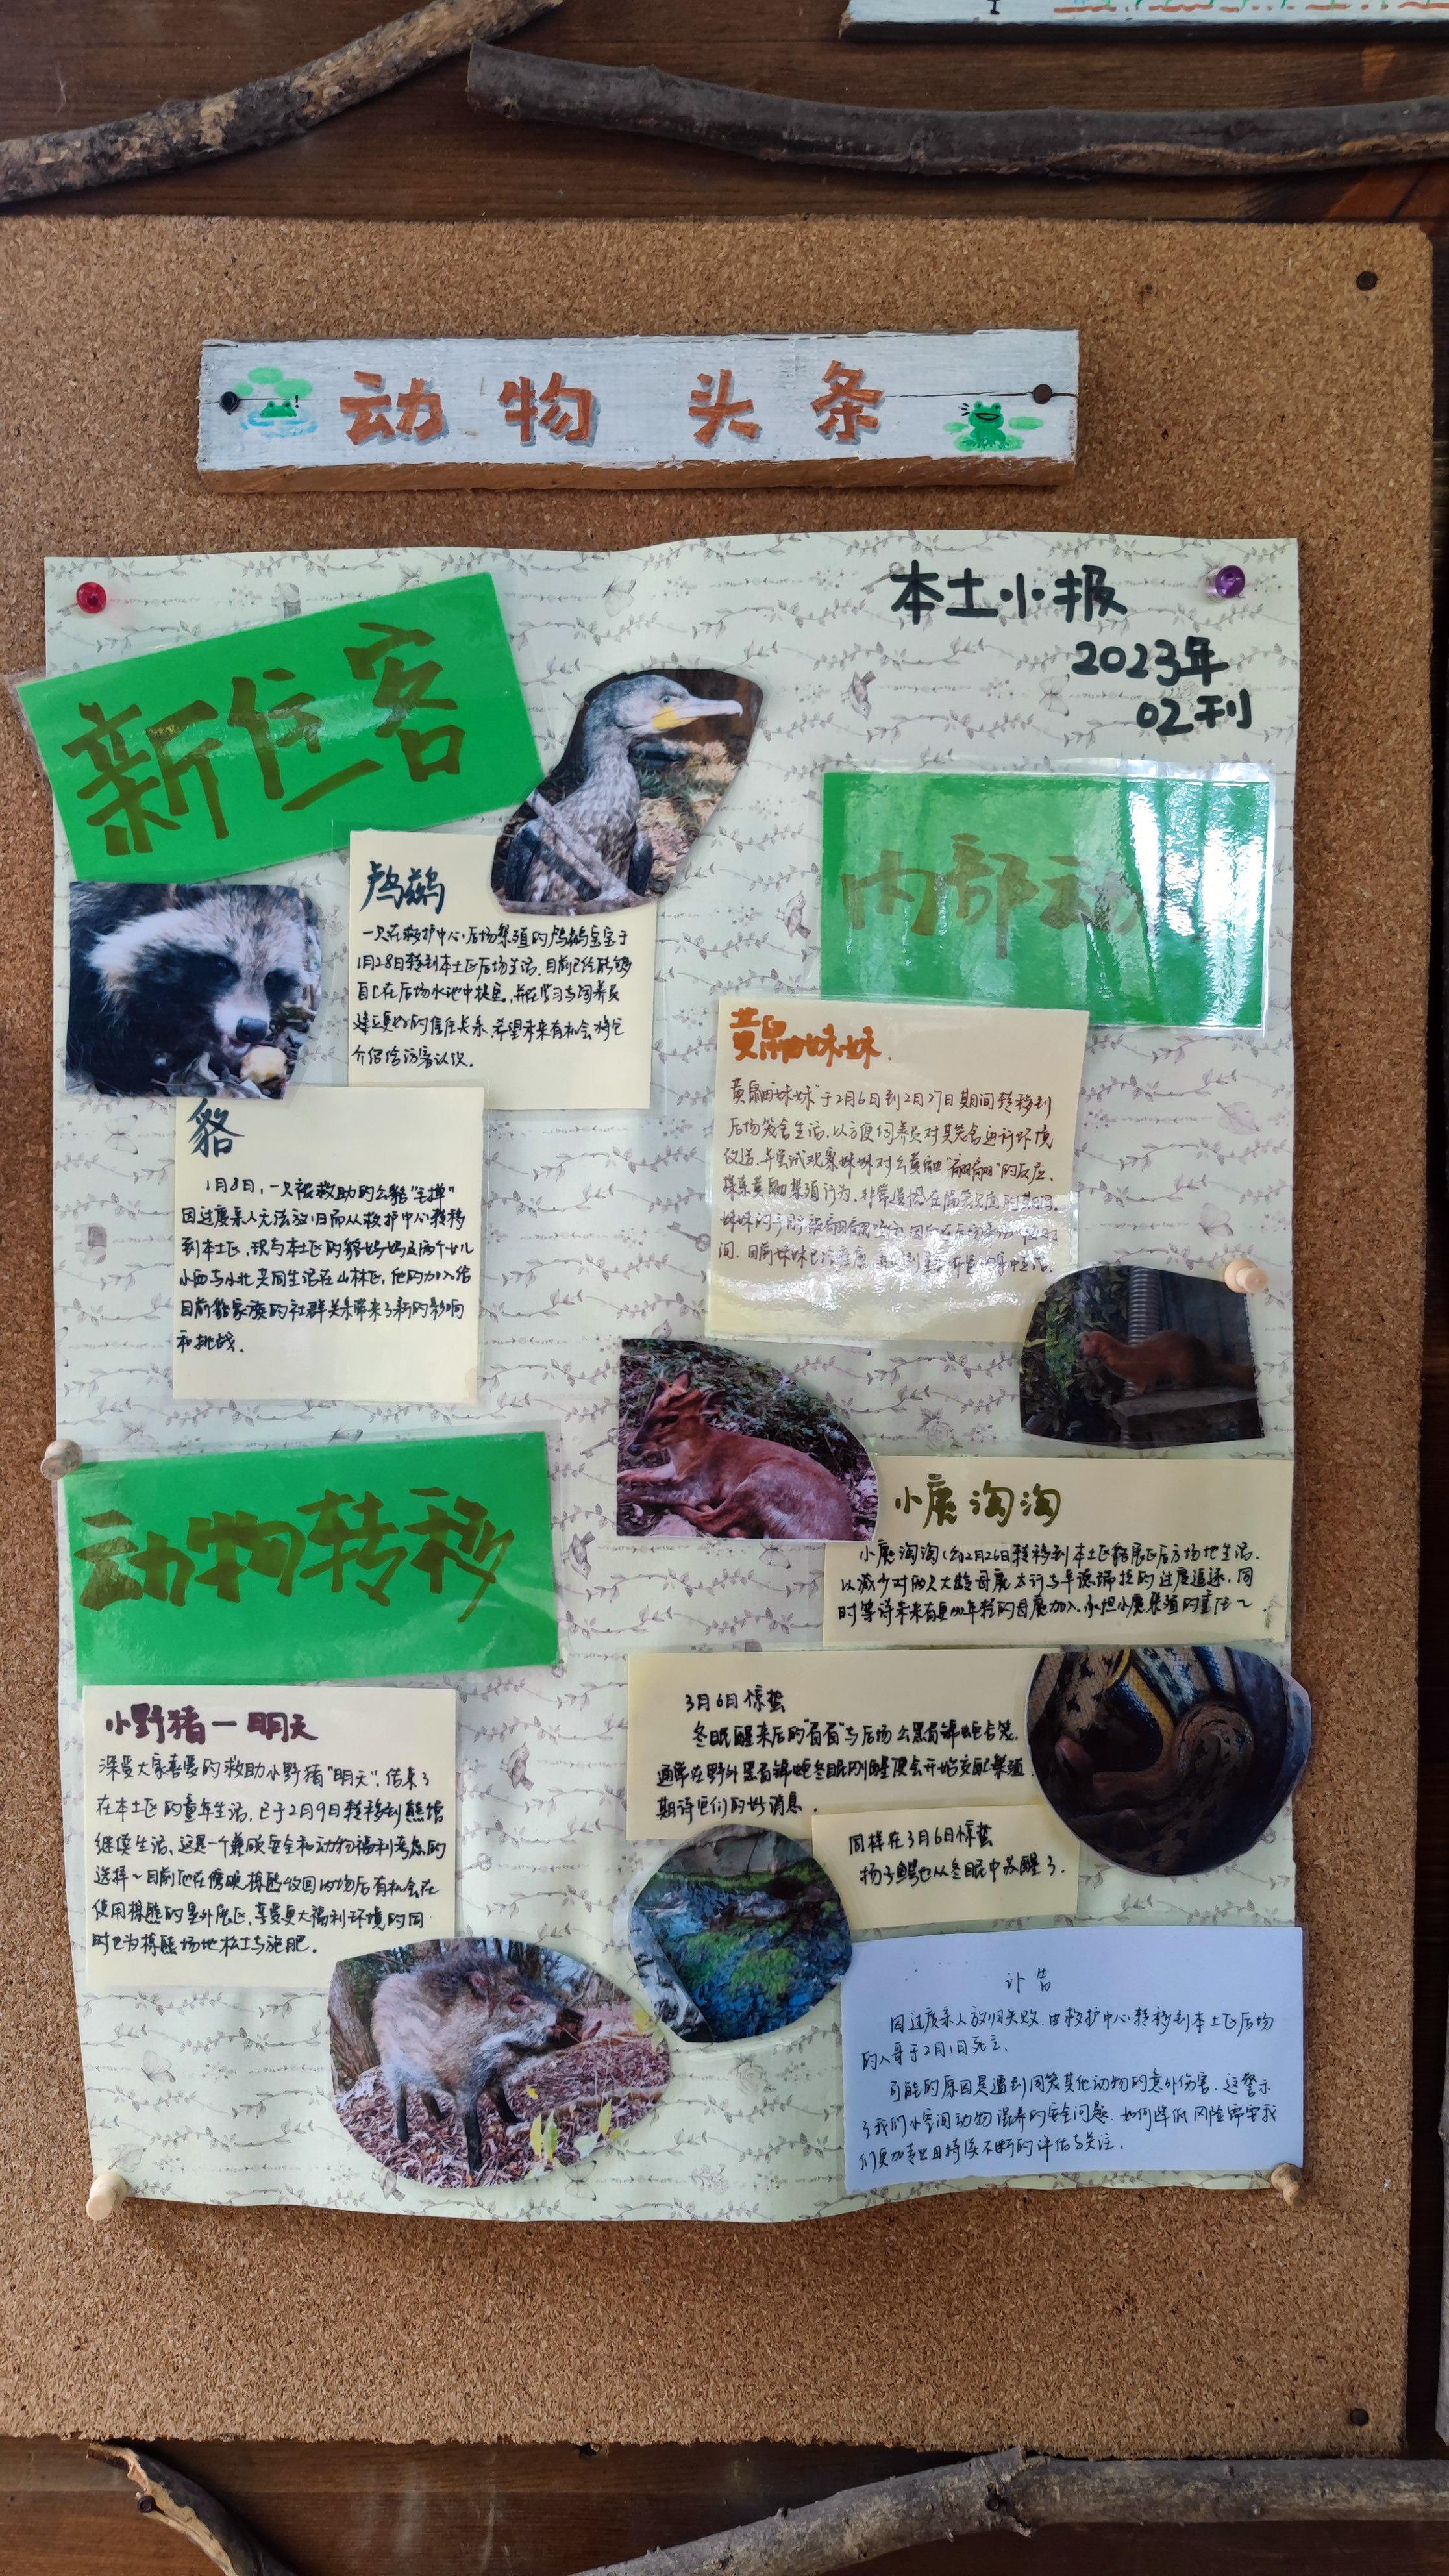 动物头条
本土小报
2023年
02刊
新住客
鸬鹚
一只在救护中心后场繁殖的鸬鹚宝宝于
1月28日转到本土区后场生活.目前已经能够
自己在后场水池中捉鱼,并在学习与饲养员
建立更好的信任关系.希望未来有机会将它
介绍给访客认识.
貉
1月8日,一只被救助的公貉"毛掸"
因过度亲人无法放归而从救护中心转移
到本土区,现与本土区的貉妈妈及两个女儿
小西与小北共同生活在山林区,他的加入给
目前貉家族的社群关系带来了新的影响
和挑战.
内部动
黄鼬妹妹.
黄鼬妹妹于2月6日到2月27日期间转移到
后场笼舍生活.以方便饲养员对其笼舍进行环境
改造.并尝试观察妹妹对公黄鼬"翩翩"的反应.
探索黄鼬繁殖行为.非常遗憾在隔笼见面的期间,
妹妹的
间.目前妹妹已
小麂淘淘
小麂淘淘(公)2月26日转移到本土区貉展区后方场地生活.
以减少对两只大龄母麂 的过度追逐.同
时等待未来有更加年轻的母麂加入.承担小麂繁殖的重任~
动物转移
小野猪—明天
深受大家喜爱的救助小野猪"明天",结束了
在本土区的童年生活.已于2月9日转移到熊馆
继续生活.这是一个兼顾安全和动物福利考虑的
选择~目前他在傍晚棕熊收回内场后有机会在
使用棕熊的室外展区.享受更大福利环境的同
时也为棕熊场地松土与施肥.
3月6日惊蛰
冬眠醒来后的"眉眉"与后场公黑眉锦蛇合笼.
通常在野外黑眉锦蛇冬眠刚醒便会开始交配繁殖.
期待它们的好消息.
同样在3月6日惊蛰
扬子鳄也从冬眠中苏醒了.
讣告
因过度亲人放归失败.由救护中心转移到本土区后场
的八哥于2月1日死亡.
可能的原因是遭到同笼其他动物的意外伤害.这警示
了我们小空间动物混养的安全问题.如何降低风险需要我
们更加专业且持续不断的评估与关注.